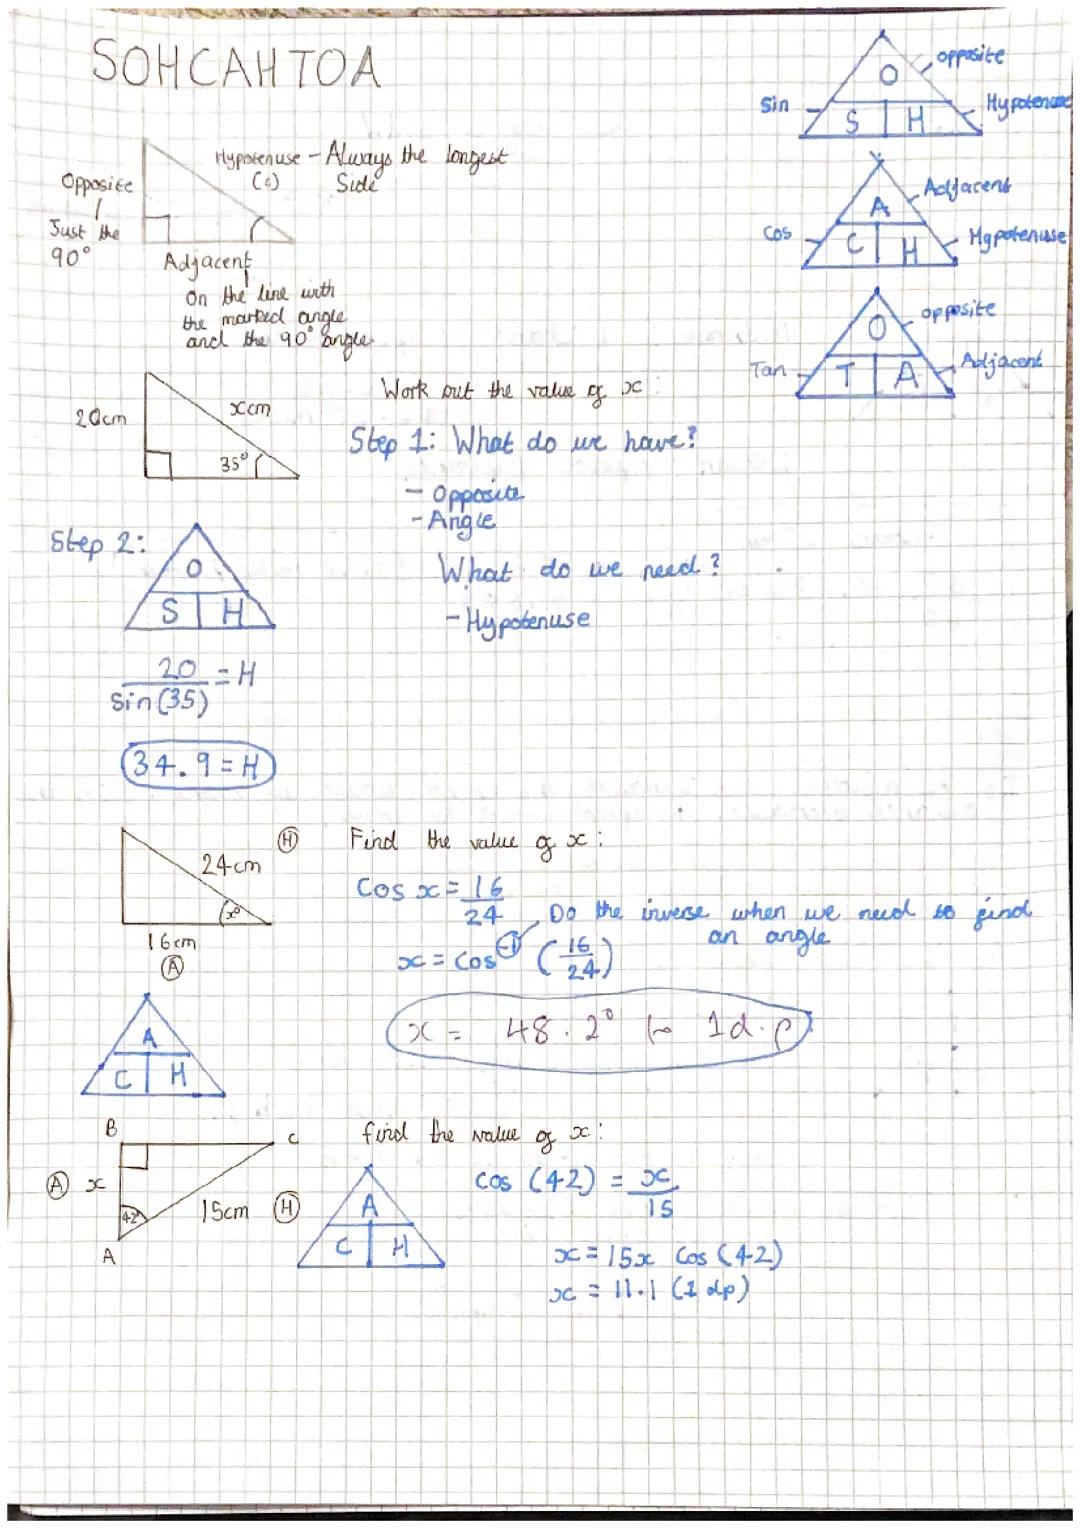 SOHCAHTOA
O
opposite
Sin
Hypotenuse
S H
Hypotenuse - Always the longest
(c) Side
Opposite
Just the
90°
Adjacent
on the line with
the marked angle
and the 90° angle
A
Adjacent
Cos
Hypotenuse
C H
O
opposite
Tan
Adjacent
T A
20cm
xcm
35°
Work out the value of x:
Step 1: What do we have?
- Opposite
- Angle
What do we need?
- Hypotenuse
Step 2:
O
S H
20 = H
Sin(35)
34.9 = H
24cm
H
x°
16cm
A
Find the value of x:
Cos x = 16
24
Do the inverse when we need to find
an angle
x = Cos-1 (16
24)
x = 48.2° to 1d.p
A
C H
B
C
A x
42°
15cm H
A
find the value of x:
A
C H
Cos (42) = x
15
x = 15x Cos (42)
x = 11.1 (1 dp)